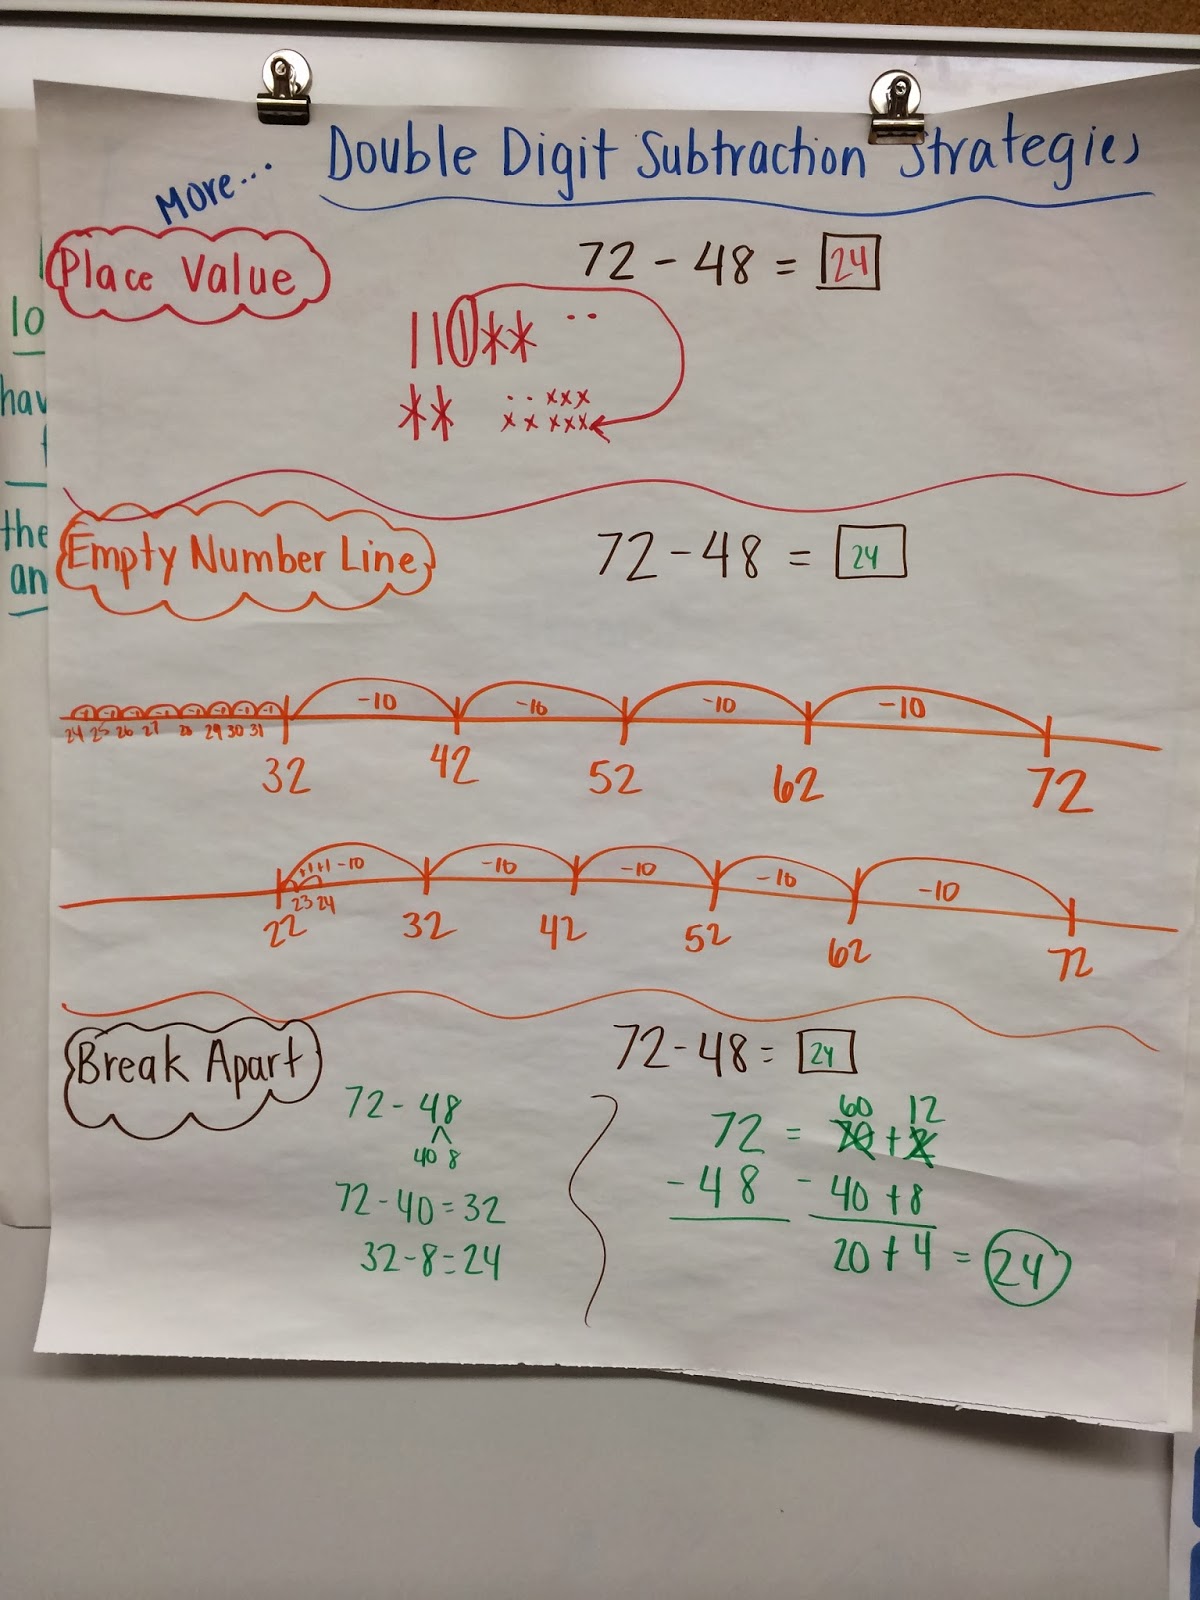 More... Double Digit Subtraction Strategies
Place Value
72 - 48 = 24
Empty Number Line
72 - 48 = 24
-1 -1 -1 -1 -1 -1 -1 -1 -10 -10 -10 -10
24 25 26 27 28 29 30 31 32 42 52 62 72
+1 +1 -10 -10 -10 -10 -10
22 23 24 32 42 52 62 72
Break Apart
72 - 48 = 24
72 - 48
40 8
72 - 40 = 32
32 - 8 = 24
60 12
72 = 70 + 2
- 48 - 40 + 8
20 + 4 = 24
10
hav
the
an